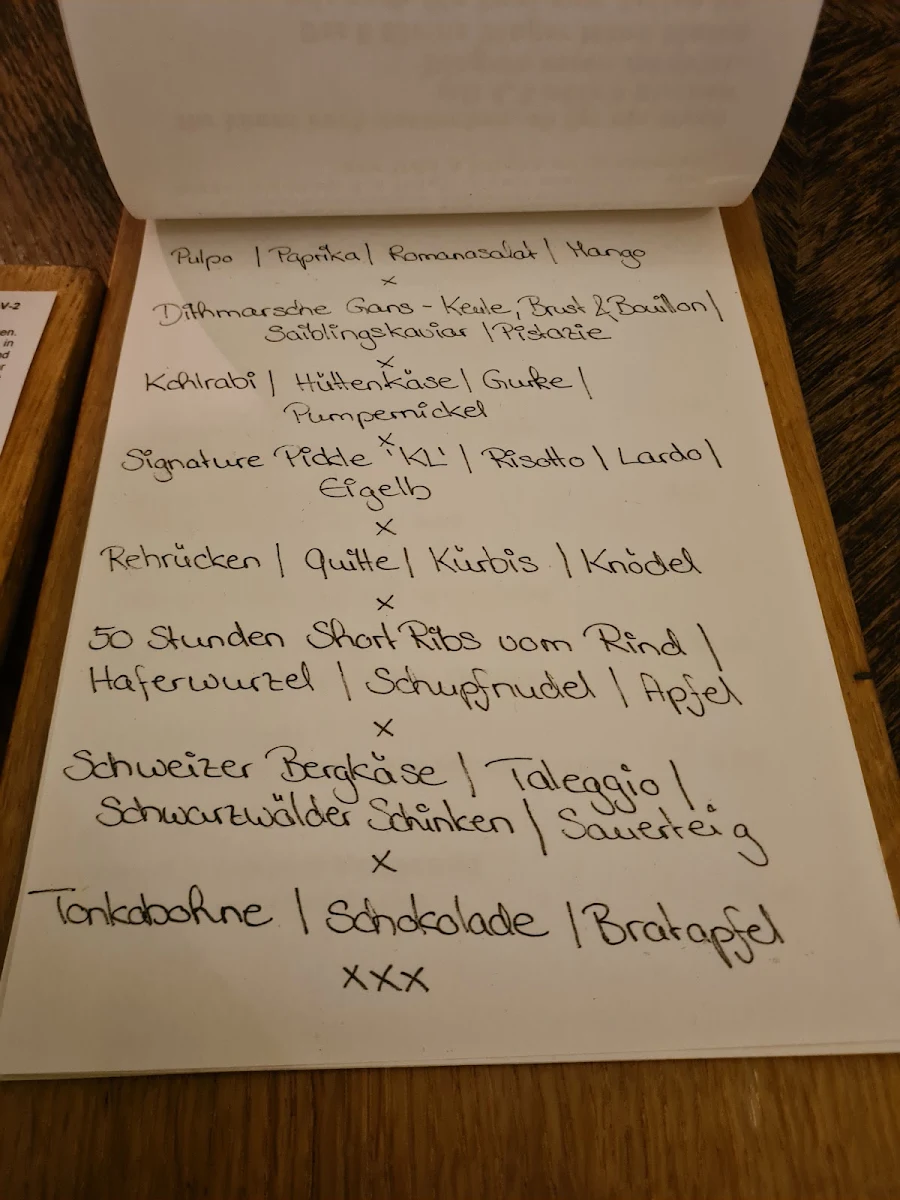 Pulpo | Paprika | Romanasalat | Mango
x
Dithmarsche Gans - Keule, Brust & Bouillon |
Saiblingskaviar | Pistazie
x
Kohlrabi | Hüttenkäse | Gurke |
Pumpernickel
x
Signature Pickle "KL" | Risotto | Lardo |
Eigelb
x
Rehrücken | Quitte | Kürbis | Knödel
x
50 Stunden Short Ribs vom Rind |
Haferwurzel | Schupfnudel | Apfel
x
Schweizer Bergkäse | Taleggio |
Schwarzwälder Schinken | Sauerteig
x
Tonkabohne | Schokolade | Bratapfel
xxx
V-2
en.
in
nd